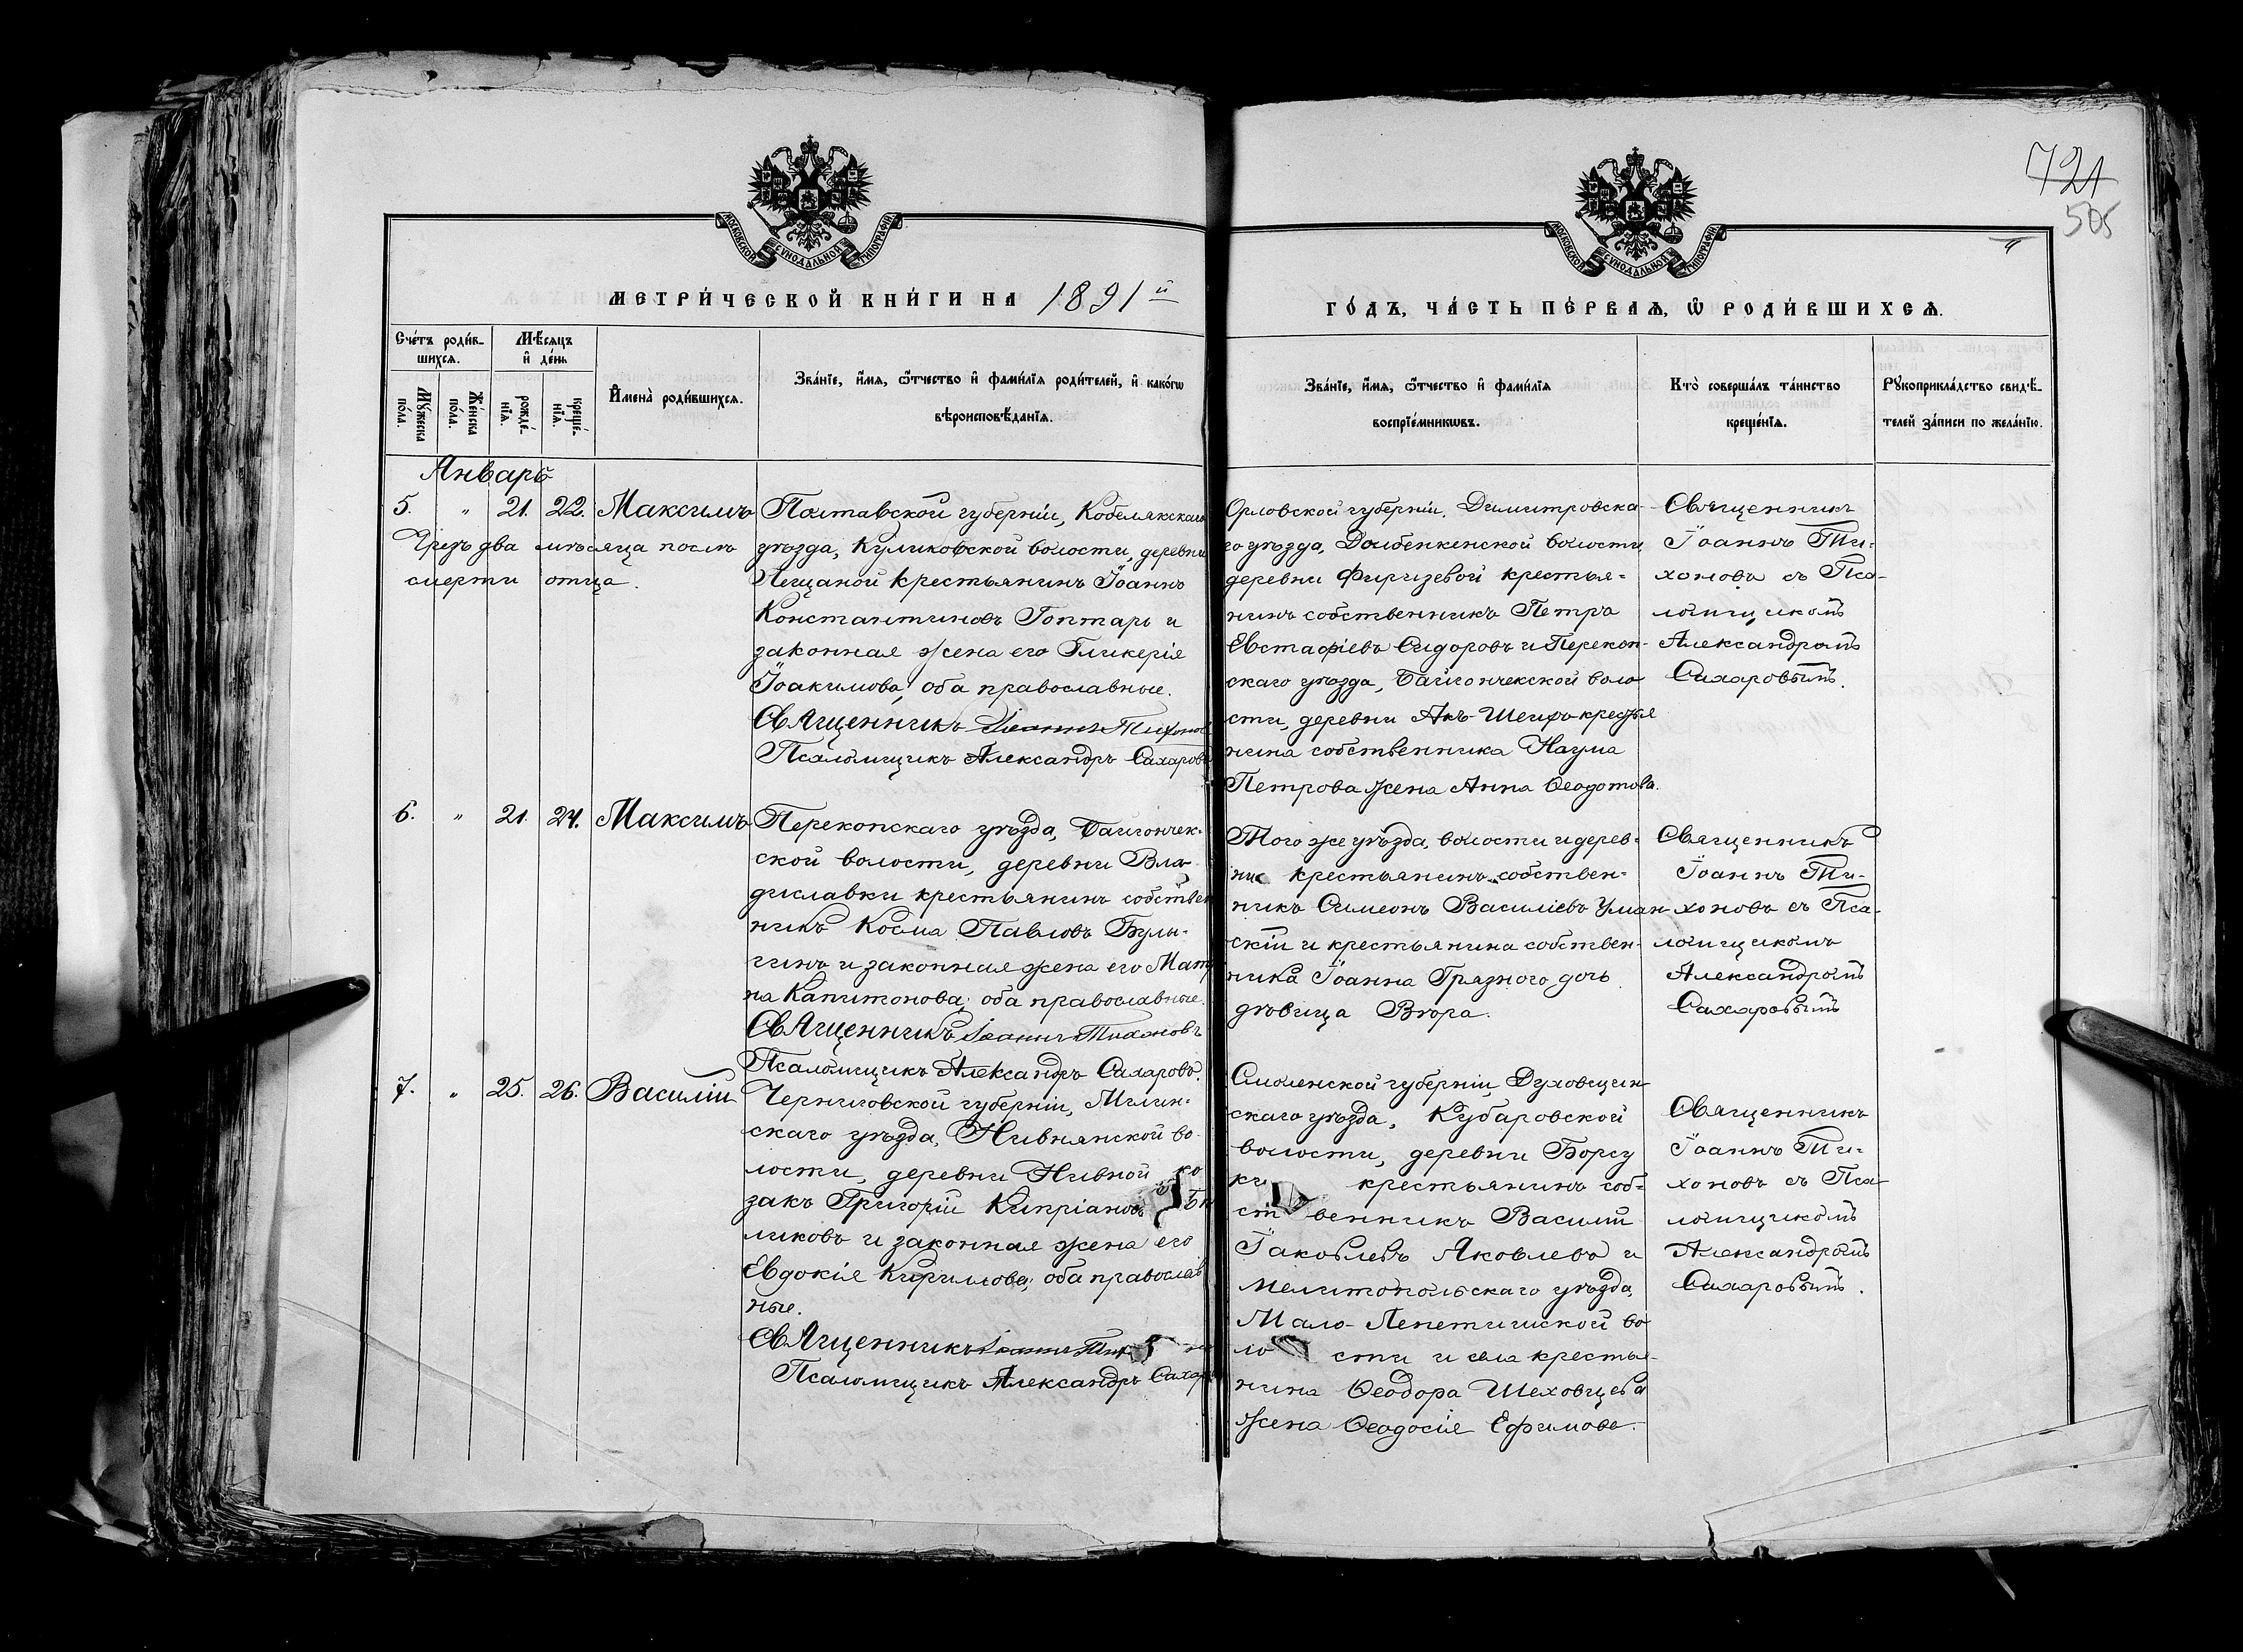 721
505
МОСКОВСКОЙ СѴНОДАЛЬНОЙ ТИПОГРАФІИ
МОСКОВСКОЙ СѴНОДАЛЬНОЙ ТИПОГРАФІИ
МЕТРИ́ЧЕСКОЙ КНИ́ГИ НА 1891й
ГО́ДЪ, ЧА́СТЬ ПЕ́РВАѦ, Ѽ РОДИ́ВШИХСѦ.
Сче́тъ роди́в-
шихсѧ.
Мꙋ́жеска по́ла.
Же́нска по́ла.
Мѣ́сяцъ
и҆ де́нь
рожде́-
нїѧ.
креще́-
нїѧ.
И҆мена̀ роди́вшихсѧ.
Зва́нїе, и҆́мѧ, ѻ҆́тчество и҆ фами́лїѧ роди́телей, и҆ како́гѡ
вѣроисповѣ́данїѧ.
Зва́нїе, и҆́мѧ, ѻ҆́тчество и҆ фами́лїѧ
воспрїе́мникѡвъ.
Кто̀ соверша́лъ та́инство
креще́нїѧ.
Рꙋкоприкла́дство свидѣ́-
телей за́писи по жела́нїю.
Январь
5. " 21. 22. Максимъ
Чрезъ два мѣсяца послѣ
смерти отца.
Полтавской губерніи, Кобелякскаго
уѣзда, Куликовской волости, деревни
Лещаной крестьянинъ Іоаннъ
Константиновъ Гоптарь и
законная жена его Гликерія
Іоакимова, оба православные.
Священникъ Іоаннъ Тихонов
Псаломщикъ Александръ Сахаровъ
Орловской губерніи, Димитровска-
го уѣзда, Долбенкенской волости
деревни Фиризевой крестья-
нинъ собственникъ Петръ
Евстафіевъ Сидоровъ и Перекоп-
скаго уѣзда, Байгончекской воло
сти, деревни Акъ-Шеихъ крестья
нина собственника Наума
Петрова жена Анна Ѳеодотова.
Священникъ
Іоаннъ Ти-
хоновъ съ Пса-
ломщикомъ
Александромъ
Сахаровымъ.
6. " 21. 24. Максимъ
Перекопскаго уѣзда, Байгончек-
ской волости, деревни Вла-
диславки крестьянинъ собствен
никъ Косма Павловъ Булы-
гинъ и законная жена его Матр
на Капитонова; оба православные.
Священникъ Іоаннъ Тихоновъ
Псаломщикъ Александръ Сахаровъ.
Того же уѣзда, волости и дерев-
ни крестьянинъ собствен-
никъ Симеонъ Василіевъ Уман
скій и крестьянина собствен-
ника Іоанна Грязного дочь
дѣвица Вѣра.
Священникъ
Іоаннъ Ти-
хоновъ съ Пса-
ломщикомъ
Александромъ
Сахаровымъ
7. " 25. 26. Василій
Черниговской губерніи, Мглин-
скаго уѣзда, Нивнянской во-
лости, деревни Нивной ко
закъ Григорій Кипріановъ
ликовъ и законная жена его
Евдокія Кириллова; оба православ
ные.
Священникъ Іоаннъ
Псаломщикъ Александръ Сахаро
Смоленской губерніи, Духовщин-
скаго уѣзда, Кубаровской
волости, деревни Борсу
ки крестьянинъ соб-
ственникъ Василій
Іаковлевъ Яковлевъ и
Мелитопольскаго уѣзда,
Мало-Лепетишской во
лости и села крестья-
нина Ѳеодора Шеховцева
жена Ѳеодосія Ефимова.
Священникъ
Іоаннъ Ти-
хоновъ съ Пса-
ломщикомъ
Александромъ
Сахаровымъ.